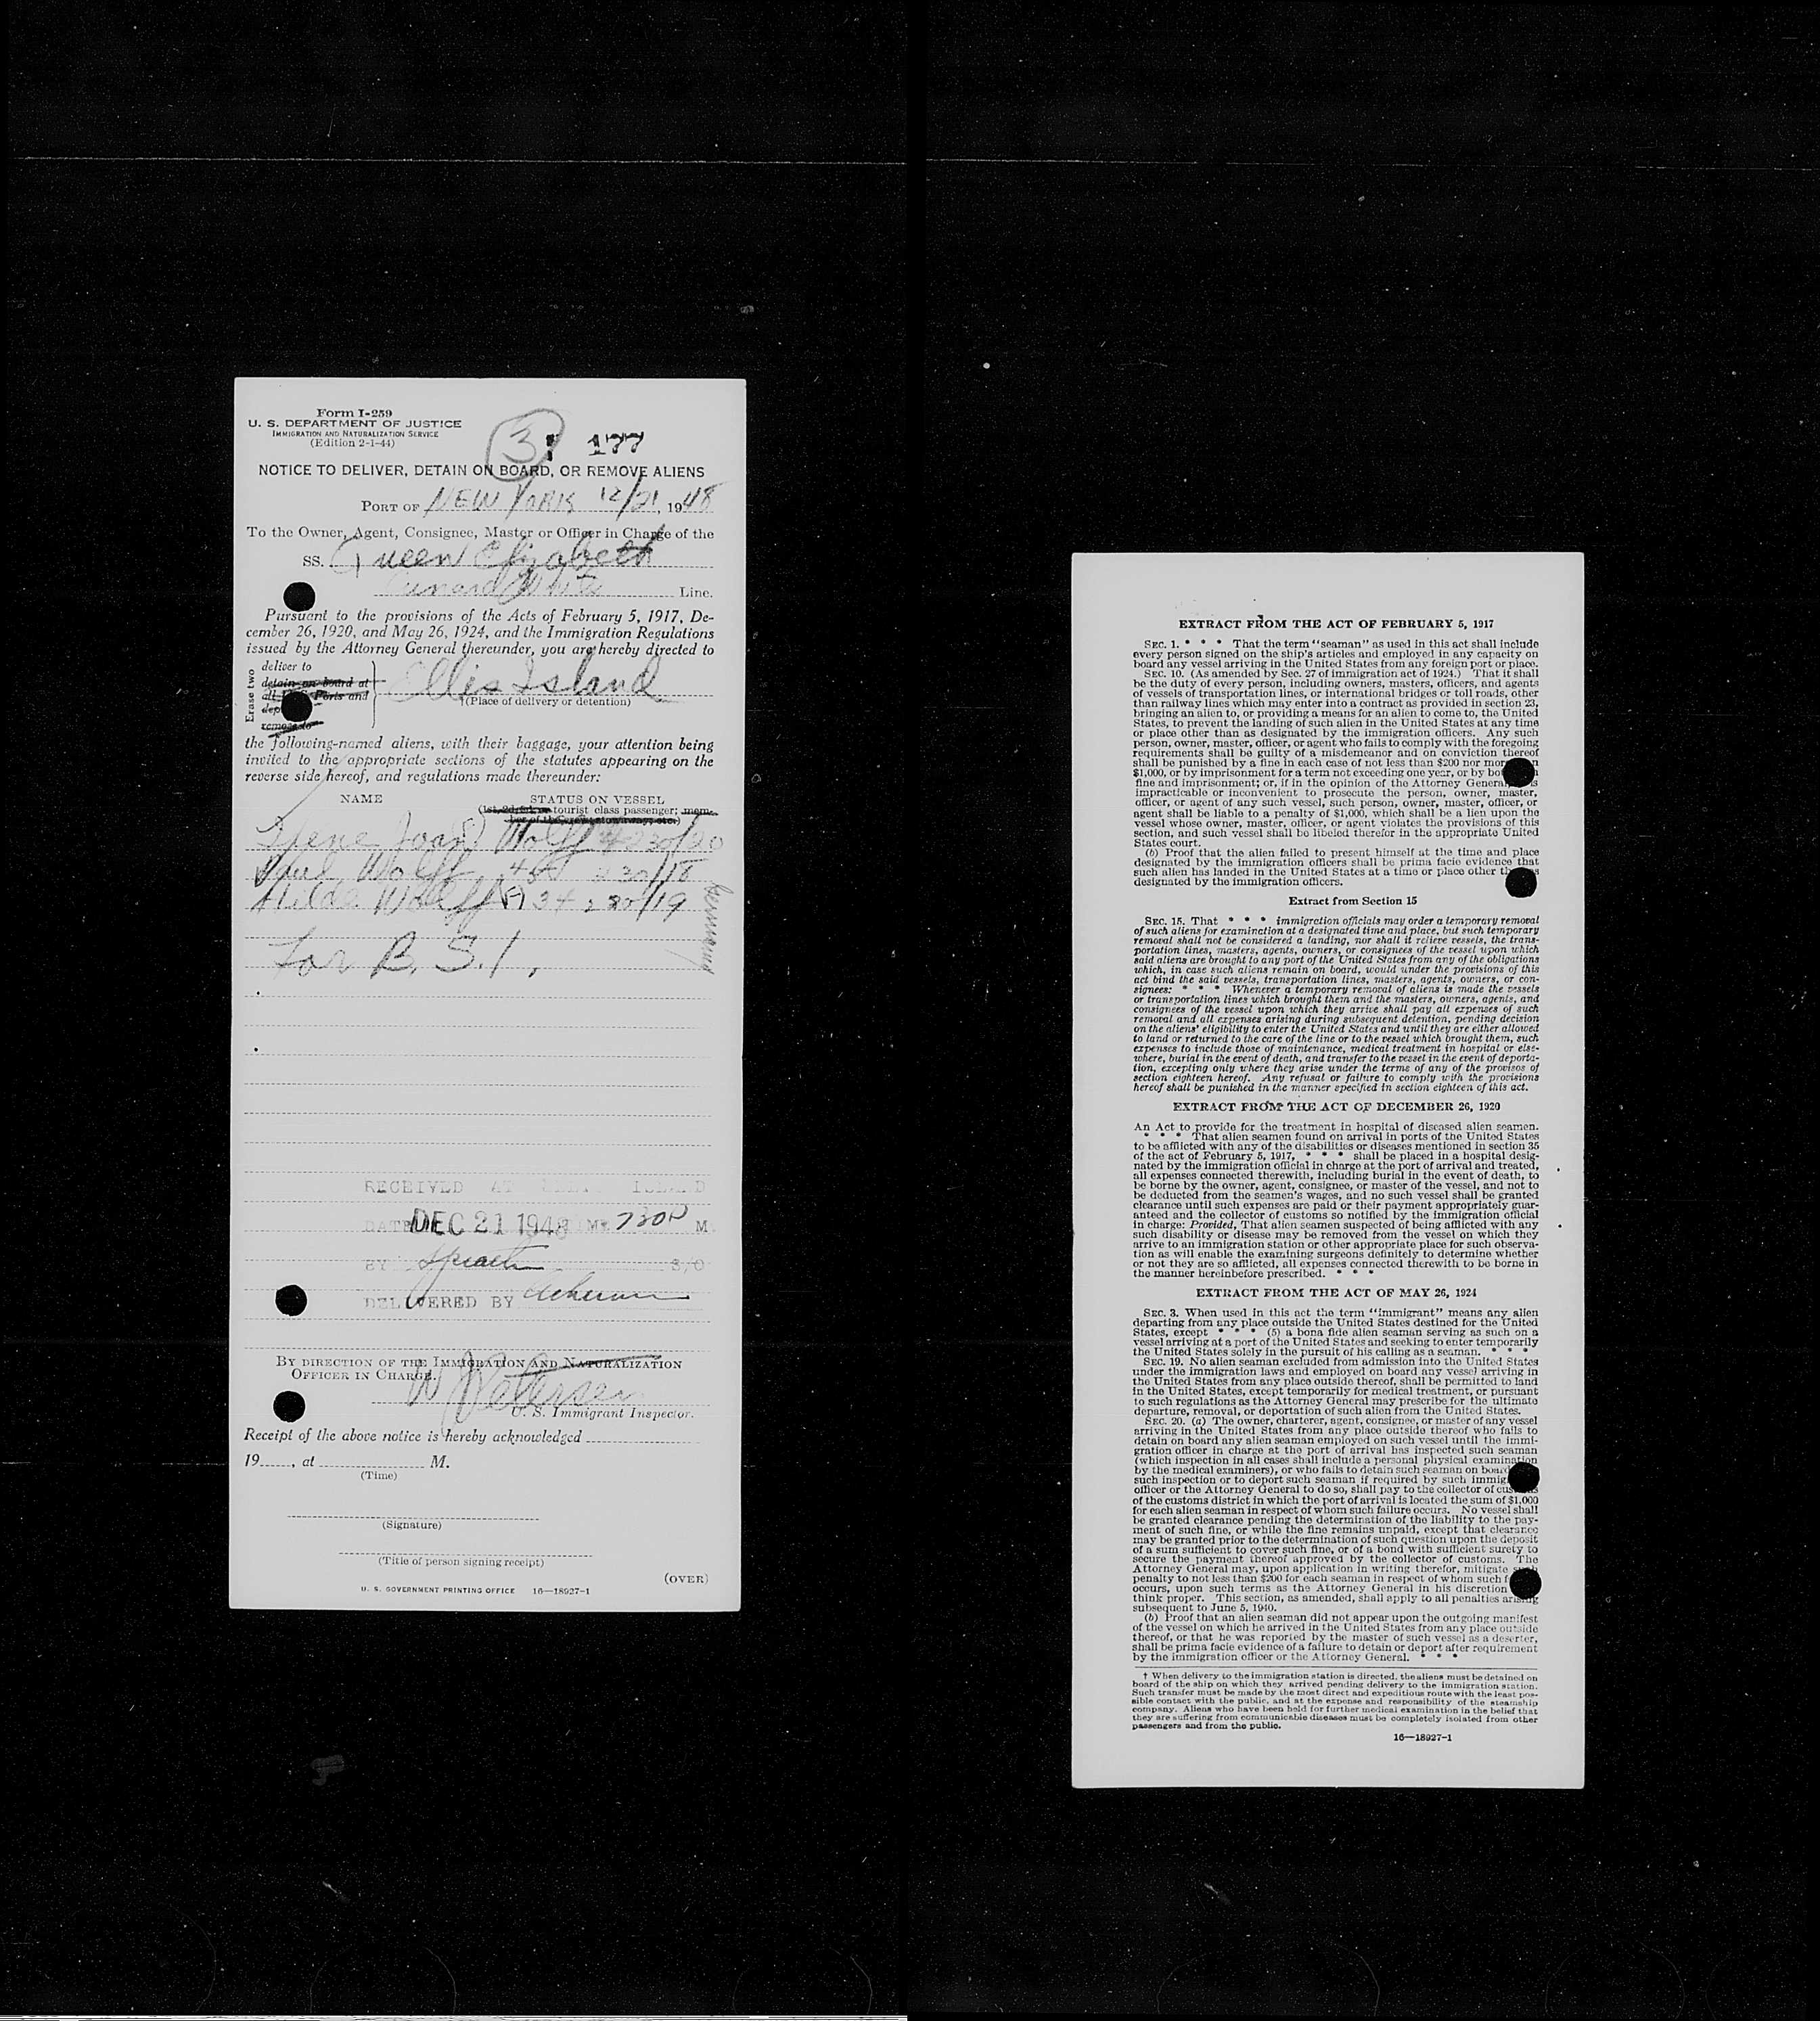 Form I-259
U. S. DEPARTMENT OF JUSTICE
IMMIGRATION AND NATURALIZATION SERVICE
(Edition 2-1-44)
3
177
NOTICE TO DELIVER, DETAIN ON BOARD, OR REMOVE ALIENS
PORT OF NEW YORK 12/21, 1948
To the Owner, Agent, Consignee, Master or Officer in Charge of the
SS. Queen Elizabeth
Cunard White Line.
Pursuant to the provisions of the Acts of February 5, 1917, De-
cember 26, 1920, and May 26, 1924, and the Immigration Regulations
issued by the Attorney General thereunder, you are hereby directed to
Erase two
deliver to
detain on board at
all Ports and
dep
remove to
Ellis Island
†(Place of delivery or detention)
the following-named aliens, with their baggage, your attention being
invited to the appropriate sections of the statutes appearing on the
reverse side hereof, and regulations made thereunder:
NAME STATUS ON VESSEL
tourist class passenger; mem-
Irene Joan Wolff 4 230/20
Paul Wolff 45 230/18
Hilda Wolff 34 230/19
Germany
For B. S. I.
RECEIVED AT ELLIS ISLAND
DATE DEC 21 1948 730P M
BY S/O
DELIVERED BY
BY DIRECTION OF THE IMMIGRATION AND NATURALIZATION
OFFICER IN CHARGE.
W Petersen
U. S. Immigrant Inspector.
Receipt of the above notice is hereby acknowledged
19 , at M.
(Time)
(Signature)
(Title of person signing receipt)
(OVER)
U. S. GOVERNMENT PRINTING OFFICE 16—18927-1
EXTRACT FROM THE ACT OF FEBRUARY 5, 1917
SEC. 1. * * * That the term "seaman" as used in this act shall include
every person signed on the ship's articles and employed in any capacity on
board any vessel arriving in the United States from any foreign port or place.
SEC. 10. (As amended by Sec. 27 of immigration act of 1924.) That it shall
be the duty of every person, including owners, masters, officers, and agents
of vessels of transportation lines, or international bridges or toll roads, other
than railway lines which may enter into a contract as provided in section 23,
bringing an alien to, or providing a means for an alien to come to, the United
States, to prevent the landing of such alien in the United States at any time
or place other than as designated by the immigration officers. Any such
person, owner, master, officer, or agent who fails to comply with the foregoing
requirements shall be guilty of a misdemeanor and on conviction thereof
shall be punished by a fine in each case of not less than $200 nor mor n
$1,000, or by imprisonment for a term not exceeding one year, or by bo
fine and imprisonment; or, if in the opinion of the Attorney General, is
impracticable or inconvenient to prosecute the person, owner, master,
officer, or agent of any such vessel, such person, owner, master, officer, or
agent shall be liable to a penalty of $1,000, which shall be a lien upon the
vessel whose owner, master, officer, or agent violates the provisions of this
section, and such vessel shall be libeled therefor in the appropriate United
States court.
(b) Proof that the alien failed to present himself at the time and place
designated by the immigration officers shall be prima facie evidence that
such alien has landed in the United States at a time or place other th as
designated by the immigration officers.
Extract from Section 15
SEC. 15. That * * * immigration officials may order a temporary removal
of such aliens for examination at a designated time and place, but such temporary
removal shall not be considered a landing, nor shall it relieve vessels, the trans-
portation lines, masters, agents, owners, or consignees of the vessel upon which
said aliens are brought to any port of the United States from any of the obligations
which, in case such aliens remain on board, would under the provisions of this
act bind the said vessels, transportation lines, masters, agents, owners, or con-
signees: * * * Whenever a temporary removal of aliens is made the vessels
or transportation lines which brought them and the masters, owners, agents, and
consignees of the vessel upon which they arrive shall pay all expenses of such
removal and all expenses arising during subsequent detention, pending decision
on the aliens' eligibility to enter the United States and until they are either allowed
to land or returned to the care of the line or to the vessel which brought them, such
expenses to include those of maintenance, medical treatment in hospital or else-
where, burial in the event of death, and transfer to the vessel in the event of deporta-
tion, excepting only where they arise under the terms of any of the provisos of
section eighteen hereof. Any refusal or failure to comply with the provisions
hereof shall be punished in the manner specified in section eighteen of this act.
EXTRACT FROM THE ACT OF DECEMBER 26, 1920
An Act to provide for the treatment in hospital of diseased alien seamen.
* * * That alien seamen found on arrival in ports of the United States
to be afflicted with any of the disabilities or diseases mentioned in section 35
of the act of February 5, 1917, * * * shall be placed in a hospital desig-
nated by the immigration official in charge at the port of arrival and treated,
all expenses connected therewith, including burial in the event of death, to
be borne by the owner, agent, consignee, or master of the vessel, and not to
be deducted from the seamen's wages, and no such vessel shall be granted
clearance until such expenses are paid or their payment appropriately guar-
anteed and the collector of customs so notified by the immigration official
in charge: Provided, That alien seamen suspected of being afflicted with any
such disability or disease may be removed from the vessel on which they
arrive to an immigration station or other appropriate place for such observa-
tion as will enable the examining surgeons definitely to determine whether
or not they are so afflicted, all expenses connected therewith to be borne in
the manner hereinbefore prescribed. * * *
EXTRACT FROM THE ACT OF MAY 26, 1924
SEC. 3. When used in this act the term "immigrant" means any alien
departing from any place outside the United States destined for the United
States, except * * * (5) a bona fide alien seaman serving as such on a
vessel arriving at a port of the United States and seeking to enter temporarily
the United States solely in the pursuit of his calling as a seaman. * * *
SEC. 19. No alien seaman excluded from admission into the United States
under the immigration laws and employed on board any vessel arriving in
the United States from any place outside thereof, shall be permitted to land
in the United States, except temporarily for medical treatment, or pursuant
to such regulations as the Attorney General may prescribe for the ultimate
departure, removal, or deportation of such alien from the United States.
SEC. 20. (a) The owner, charterer, agent, consignee, or master of any vessel
arriving in the United States from any place outside thereof who fails to
detain on board any alien seaman employed on such vessel until the immi-
gration officer in charge at the port of arrival has inspected such seaman
(which inspection in all cases shall include a personal physical examination
by the medical examiners), or who fails to detain such seaman on board
such inspection or to deport such seaman if required by such immig
officer or the Attorney General to do so, shall pay to the collector of cus s
of the customs district in which the port of arrival is located the sum of $1,000
for each alien seaman in respect of whom such failure occurs. No vessel shall
be granted clearance pending the determination of the liability to the pay-
ment of such fine, or while the fine remains unpaid, except that clearance
may be granted prior to the determination of such question upon the deposit
of a sum sufficient to cover such fine, or of a bond with sufficient surety to
secure the payment thereof approved by the collector of customs. The
Attorney General may, upon application in writing therefor, mitigate such
penalty to not less than $200 for each seaman in respect of whom such f
occurs, upon such terms as the Attorney General in his discretion
think proper. This section, as amended, shall apply to all penalties arising
subsequent to June 5, 1940.
(b) Proof that an alien seaman did not appear upon the outgoing manifest
of the vessel on which he arrived in the United States from any place outside
thereof, or that he was reported by the master of such vessel as a deserter,
shall be prima facie evidence of a failure to detain or deport after requirement
by the immigration officer or the Attorney General. * * *
† When delivery to the immigration station is directed, the aliens must be detained on
board of the ship on which they arrived pending delivery to the immigration station.
Such transfer must be made by the most direct and expeditious route with the least pos-
sible contact with the public, and at the expense and responsibility of the steamship
company. Aliens who have been held for further medical examination in the belief that
they are suffering from communicable diseases must be completely isolated from other
passengers and from the public.
16—18927-1